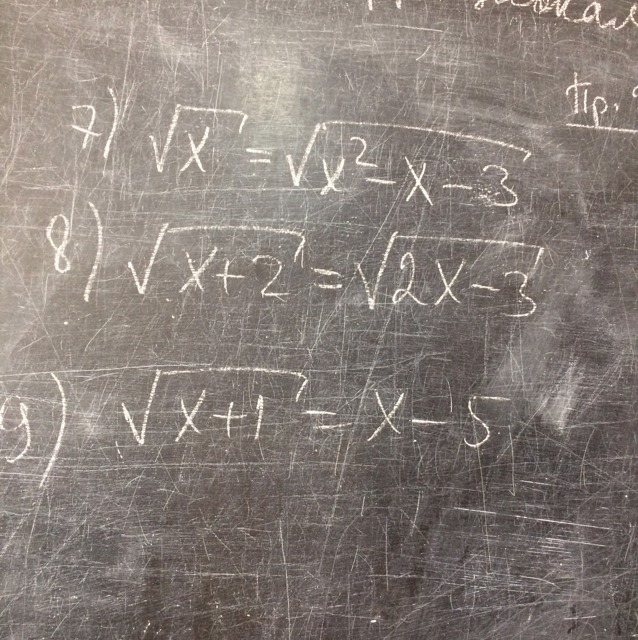 пр.
7) √x = √x² - x - 3
8) √x+2 = √2x-3
9) √x+1 = x - 5